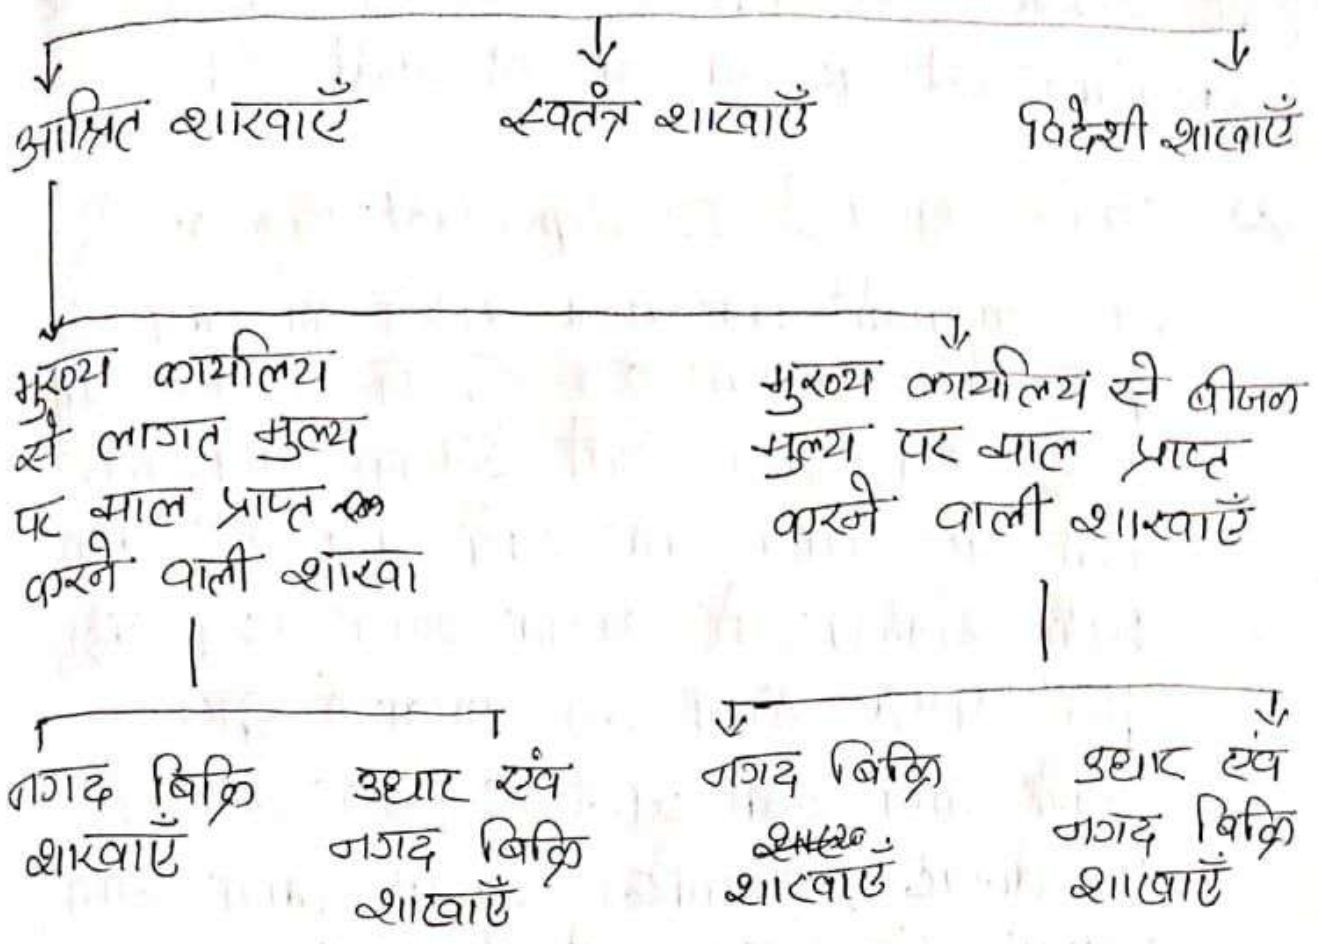 आश्रित शाखाएँ
स्वतंत्र शाखाएँ
विदेशी शाखाएँ
मुख्य कार्यालय
से लागत मुल्य
पर माल प्राप्त
करने वाली शाखा
मुख्य कार्यालय से बीजक
मुल्य पर माल प्राप्त
करने वाली शाखाएँ
नगद बिक्रि
शाखाएँ
उधार एंव
नगद बिक्रि
शाखाएँ
नगद बिक्रि
शाखाएँ
उधार एंव
नगद बिक्रि
शाखाएँ